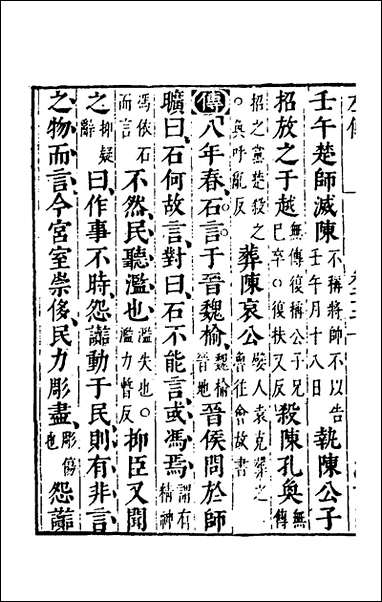 壬午楚師滅陳不稱將帥不以告壬午月十八日執陳公子
招放之于越無傳復稱公子兄已卒○復扶又反殺陳孔奐無傳
招之黨楚殺之○奐呼亂反葬陳哀公嬖人袁克葬之魯往會故書
傳八年春石言于晉魏榆魏榆晉地晉侯問於師
曠曰石何故言對曰石不能言或馮焉謂有精神
馮依石而言不然民聽濫也濫失也○濫力暫反抑臣又聞
之抑疑辭曰作事不時怨讟動于民則有非言
之物而言今宮室崇侈民力彫盡彫傷也怨讟